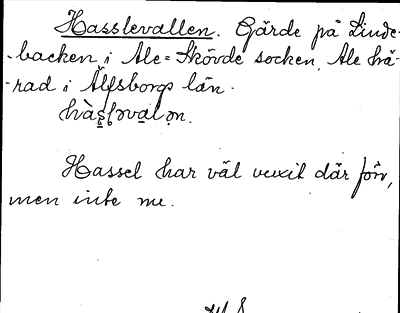 Hasslevallen. Gärde på Linde-
backen i Ale-Skövde socken, Ale hä-
rad i Älfsborgs län.
Hassel har väl vuxit där förr,
men inte nu.